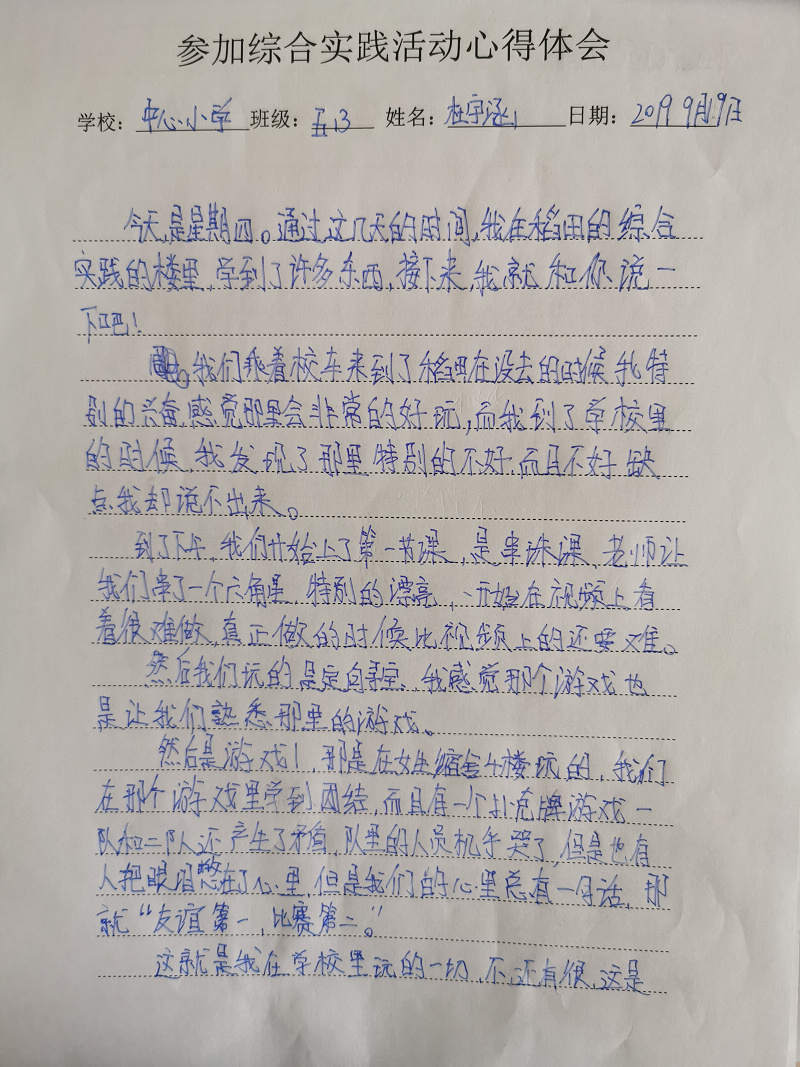 参加综合实践活动心得体会
学校：中心小学 班级：五13 姓名：杜宇涵 日期：2019 9月19日
今天是星期四。通过这几天的时间，我在稻田的综合
实践的楼里，学到了许多东西，接下来，我就和你说一
下吧！
我们乘着校车来到了稻田在没去的时候我特
别的兴奋，感觉那里会非常的好玩，而我到了学校里
的时候，我发现了那里特别的不好，而且不好缺
点我却说不出来。
到了下午，我们开始上了第一节课，是串珠课，老师让
我们串了一个六角星，特别的漂亮，一开始在视频上看
着很难做，真正做的时候比视频上的还要难。
然后我们玩的是定向寻宝，我感觉那个游戏也
是让我们熟悉那里的游戏。
然后是游戏1，那是在女生缩舍4楼玩的，我们
在那个游戏里学到团结，而且有一个扑克牌游戏一
队和二队人还产生了矛盾，队里的人员机乎哭了，但是也有
人把眼泪憋在了心里，但是我们的心里总有一句话，那
就“友谊第一，比赛第二。”
这就是我在学校里玩的一切，不，还有很，这是